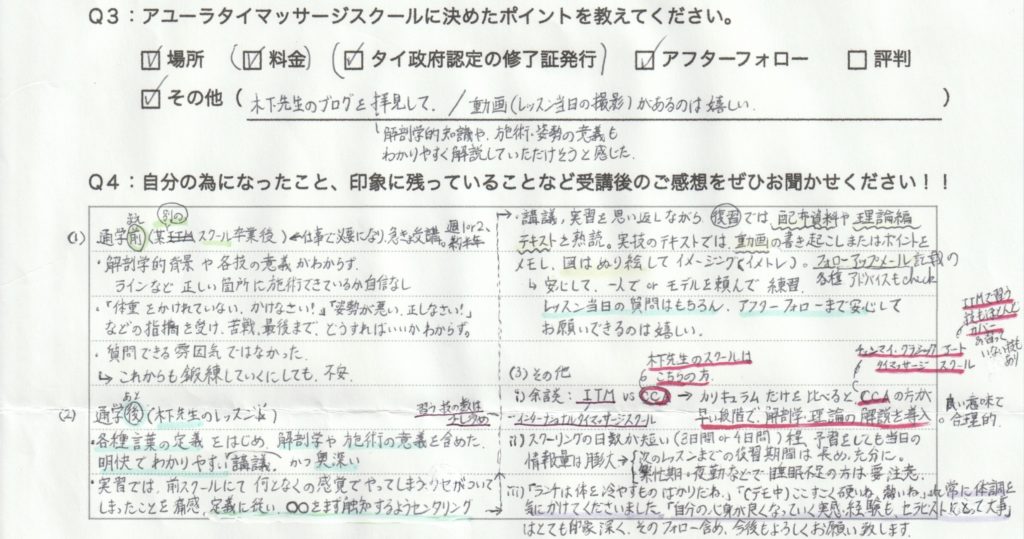 Q3：アユーラタイマッサージスクールに決めたポイントを教えてください。
場所 (料金) (タイ政府認定の修了証発行) アフターフォロー 評判
その他 (木下先生のブログを拝見して。/動画(レッスン当日の撮影)があるのは嬉しい。)
解剖学的知識や、施術・姿勢の意義も
わかりやすく解説していただけそうと感じた。
Q4：自分の為になったこと、印象に残っていることなど受講後のご感想をぜひお聞かせください！！
別の
(1) 通学前(某ITMスクール卒業後) ←仕事で必要になり、急きょ受講。
・解剖学的背景や各技の意義がわからず。
ラインなど正しい箇所に施術できているか自信なし
・「体重をかけれていない、かけなさい!」「姿勢が悪い、正しなさい!」
などの指摘を受け、苦戦。最後まで、どうすればいいかわからず。
・質問できる雰囲気ではなかった。
↳ これからも鍛練していくにしても、不安。
あと
(2) 通学後(木下先生のレッスン)
習う技の数は
・各種言葉の定義をはじめ、解剖学や施術の意義を含めた
明快でわかりやすい講議。かつ奥深い
・実習では、前スクールにて何となくの感覚でやってしまうクセがついて
しまったことを痛感。定義に従い、〇〇をまず触知するようセンタリング
・講議、実習を思い返しながら復習では、配布資料や理論編
テキストを熟読。実技のテキストでは、動画の書き起こしまたはポイントを
メモし、図はぬり絵してイメージング(イメトレ)。フォローアップメール記載の
各種アドバイスもcheck
↳ 安心して、一人でorモデルを頼んで練習。
レッスン当日の質問はもちろん、アフターフォローまで安心して
お願いできるのは嬉しい。
ITMで習う
技もほとんど
カバー
木下先生のスクールは
こちらの方。
チェンマイ・クラシックアート
タイマッサージスクール
(3) その他
i) 余談：ITM vs CCA → カリキュラムだけを比べるとCCAの方が
早い段階で、解剖学・理論の解説を導入。
良い意味で
合理的。
インターナショナルタイマッサージスクール
ii) スクーリングの日数が短い(3日間or4日間)程、予習をしても当日の
情報量は膨大→次のレッスンまでの復習期間は長め、充分に。
繁忙期・夜勤などで睡眠不足の方は要注意。
iii) 「ランチは体を冷やすものばかりだね。」「(デモ中)ここすごく硬いね、痛いね。」etc 常に体調を
気にかけてくださいました。「自分の心身が良くなっていく実感・経験も、セラピストとして大事」
はとても印象深く、そのフォロー含め、今後もよろしくお願い致します。